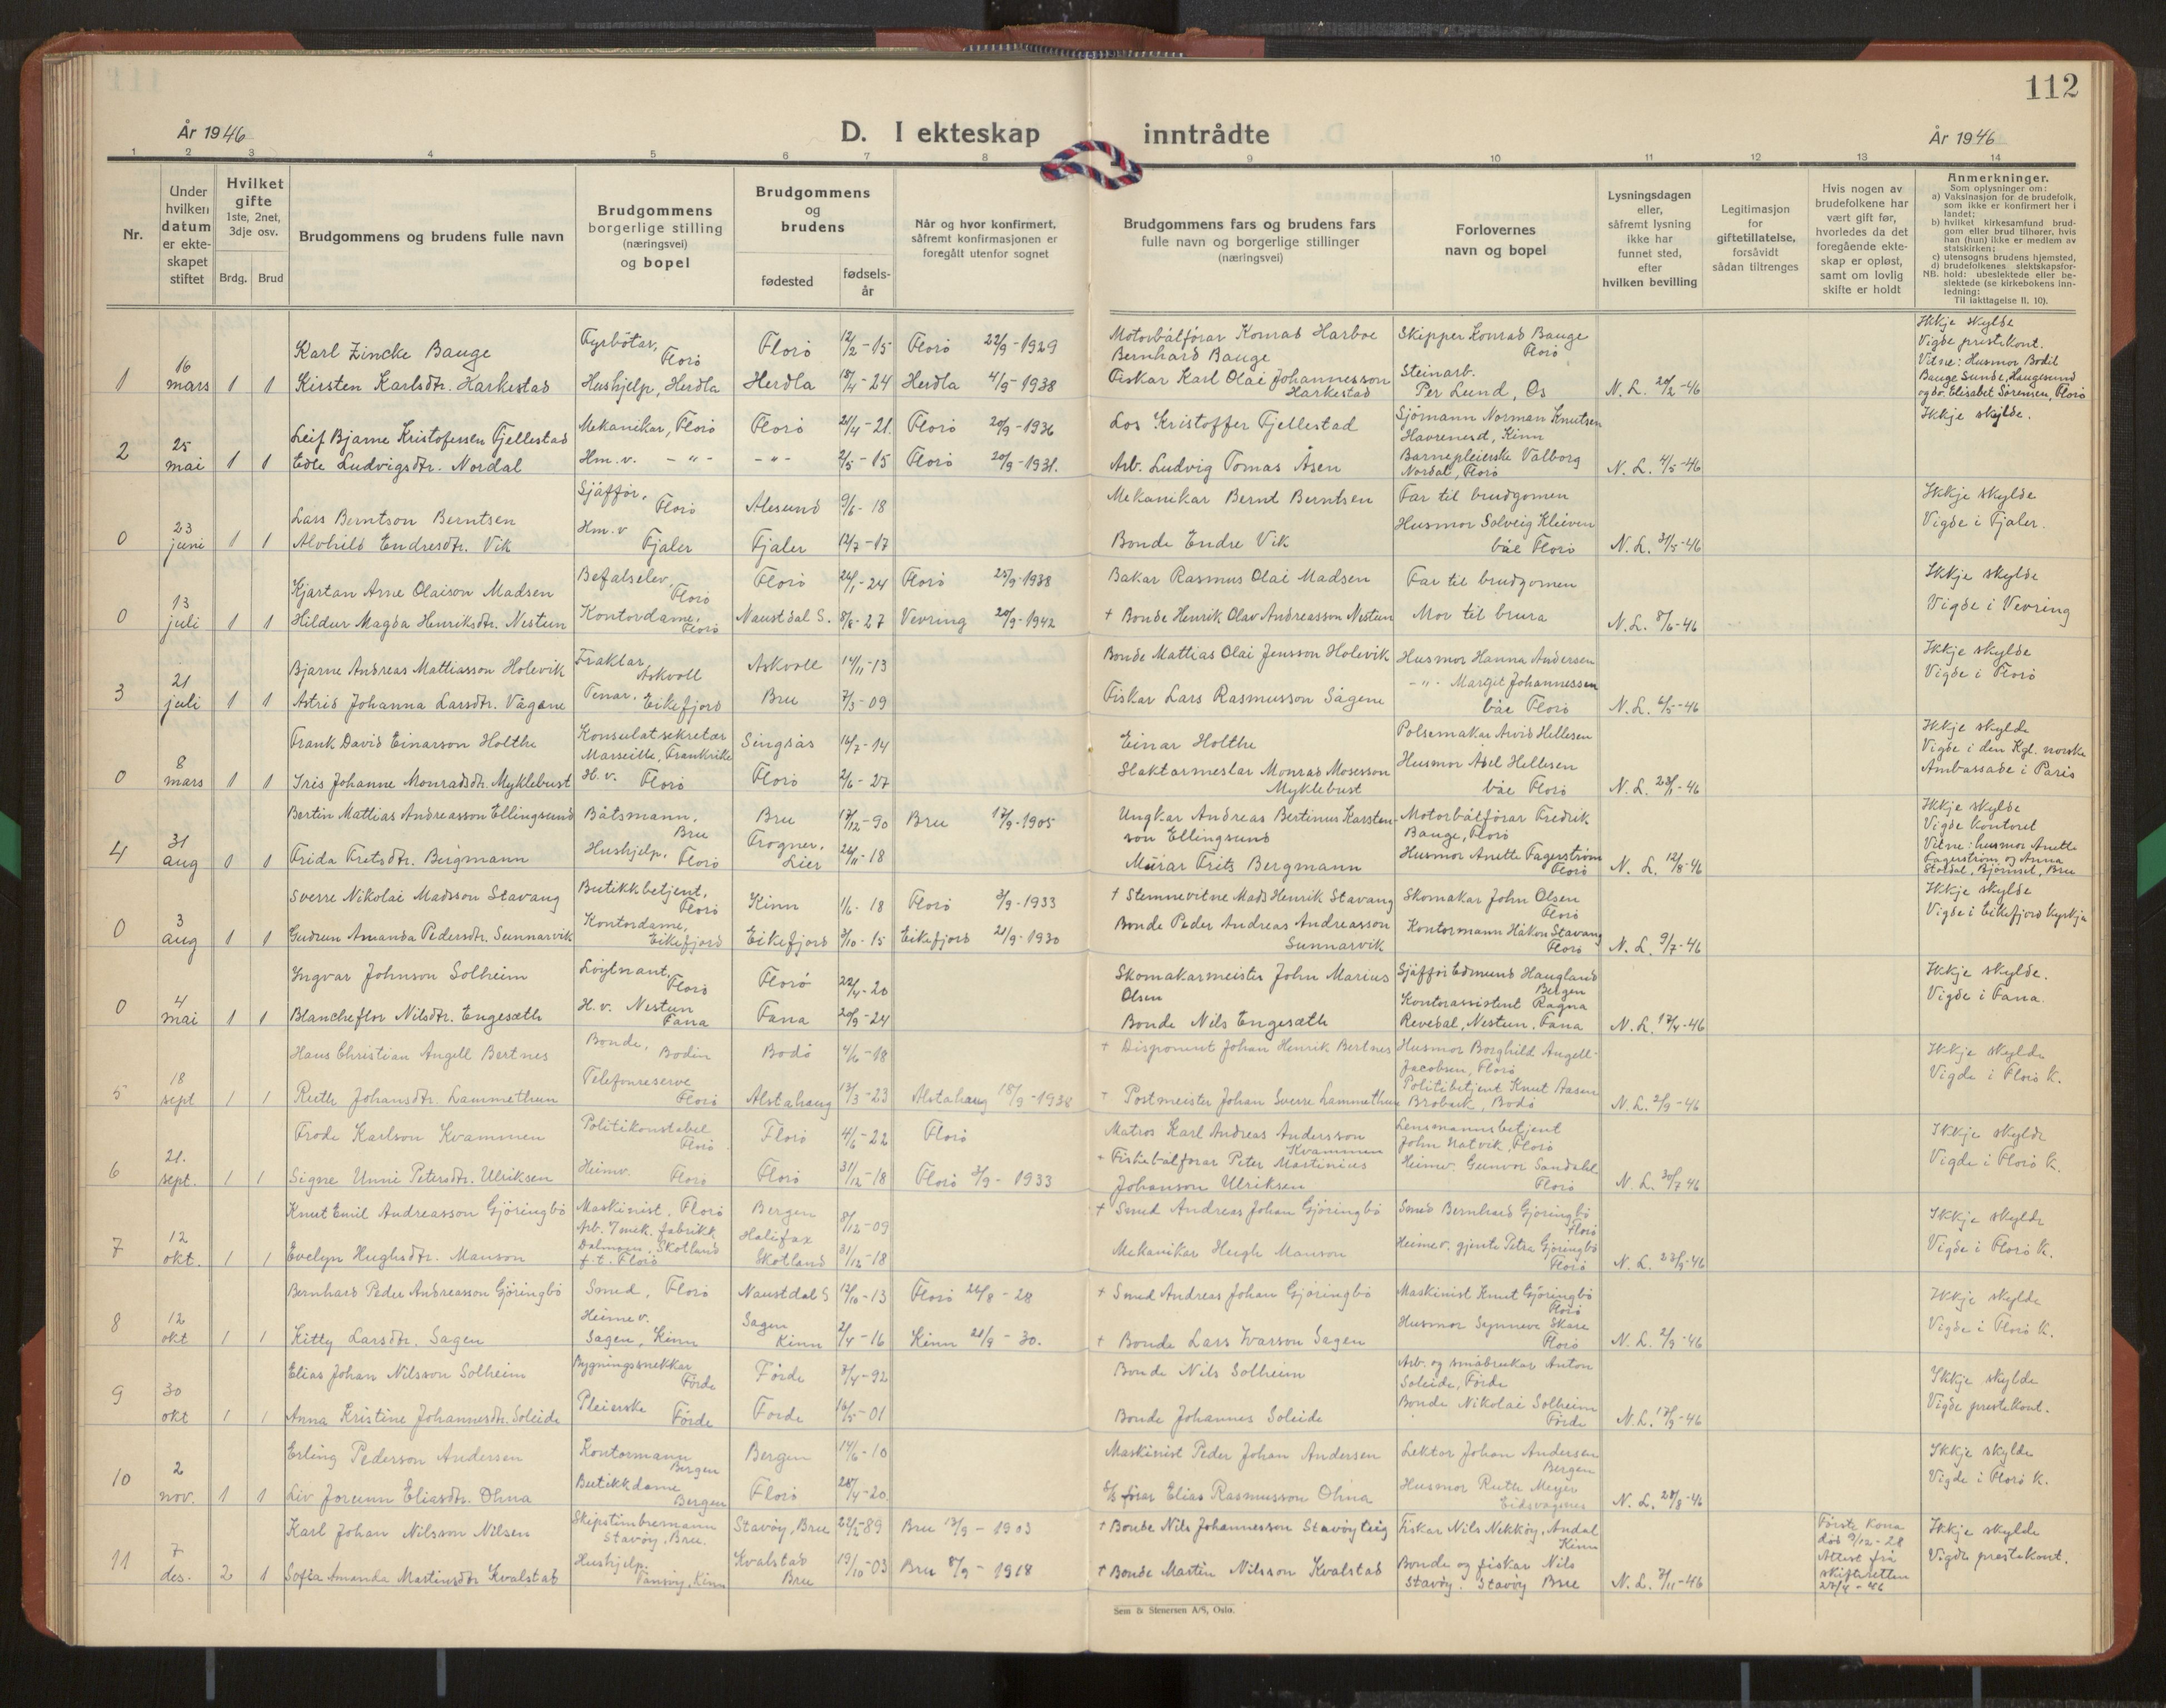 112
År 1946
D. I ekteskap inntrådte
År 1946
1 2 3 4 5 6 7 8 9 10 11 12 13 14
Nr.
Under hvilken datum er ekte-skapet stiftet
Hvilket gifte
1ste, 2net, 3dje osv.
Brdg. Brud
Brudgommens og brudens fulle navn
Brudgommens borgerlige stilling (næringsvei) og bopel
Brudgommens og brudens
fødested
fødsels-år
Når og hvor konfirmert, såfremt konfirmasjonen er foregått utenfor sognet
Brudgommens fars og brudens fars fulle navn og borgerlige stillinger (næringsvei)
Forlovernes navn og bopel
Lysningsdagen eller, såfremt lysning ikke har funnet sted, efter hvilken bevilling
Legitimasjon for giftetillatelse, forsåvidt sådan tiltrenges
Hvis nogen av brudefolkene har vært gift før, hvorledes da det foregående ekte-skap er opløst, samt om lovlig skifte er holdt
Anmerkninger.
Som oplysninger om:
a) Vaksinasjon for de brudefolk, som ikke er konfirmert her i landet;
b) hvilket kirkesamfund brud-gom eller brud tilhører, hvis han (hun) ikke er medlem av statskirken;
c) utensogns brudens hjemsted,
d) brudefolkenes slektskapsfor-hold: ubeslektede eller be-slektede (se kirkebokens inn-ledning:
NB. Til iakttagelse II. 10).
1 16 mars 1 1
Karl Zincke Bauge
Fyrbötar, Florö Florö 12/2-15 Florö 22/9-1929
Motorbåtförar Konrad Harboe Bernhard Bauge
Skipper Konrad Bauge Florö
Kirsten Karlsdtr. Harkestad
Hushjelp, Herdla Herdla 18/4-24 Herdla 4/9-1938
Fiskar Karl Olai Johannesson Harkestad
Steinarb. Per Lund, Os
N. L. 20/2-46
Ikkje skylde
Vigde prestekont.
Vitne: Husmor Bodil Bauge Sunde, Haugesund og do. Elisabet Sørensen, Florö
2 25 mai 1 1
Leif Bjarne Kristofersen Fjellestad
Mekanikar, Florö Florö 21/4-21. Florö 20/9-1936
Los Kristoffer Fjellestad
Sjömann Norman Knutsen, Kinn
Edle Ludvigsdtr. Nordal
Hm. v. -"- -"- 2/5-15 Florö 20/9-1931.
Arb. Ludvig Tomas Åsen
Barnepleierske Valborg Nordal, Florö
N. L. 4/5-46
Ikkje skylde.
0 23 juni 1 1
Lars Berntson Berntsen
Sjåfför, Florö Ålesund 9/6-18
Mekanikar Bernt Berntsen
Far til brudgomen
Alvhild Endresdtr. Vik
Hm. v Fjaler Fjaler 12/7-17
Bonde Endre Vik
Husmor Solveig Kleiven båe Florö
N. L. 31/5-46
Ikkje skylde
Vigde i Fjaler.
0 13 juli 1 1
Kjartan Arne Olaison Madsen
Befalselev, Florö Florö 24/1-24 Florö 25/9-1938
Bakar Rasmus Olai Madsen
Far til brudgomen
Hildur Magda Henriksdtr. Nestun
Kontordame, Florö Naustdal S. 8/8-27 Vevring 20/9-1942
+ Bonde Henrik Olav Andreasson Nestun
Mor til brura
N. L. 8/6-46
Ikkje skylde
Vigde i Vevring
3 21 juli 1 1
Bjarne Andreas Mattiasson Holevik
Fraktar, Askvoll Askvoll 14/11-13
Bonde Mattias Olai Jensson Holevik
Husmor Hanna Andersen
Astrid Johanna Larsdtr. Vågane
Tenar, Eikefjord Bru 7/3-09
Fiskar Lars Rasmusson Sågene
-"- Margit Johannessen båe Florö
N. L. 6/5-46
Ikkje skylde
Vigde i Florö
0 8 mars 1 1
Frank David Einarson Holthe
Konsulatsekretær Marseille, Frankrike Singsås 16/7-14
Einar Holthe
Pølsemakar Arvid Hellesen
Iris Johanne Monradsdtr. Myklebust
H. v. Florö Florö 2/6-27
Slaktarmestar Monrad Mosesson Myklebust
Husmor Abel Hellesen båe Florö
N. L. 23/1-46
Ikkje skylde
Vigde i den Kgl. norske Ambassade i Paris
4 31 aug 1 1
Bertin Mattias Andreasson Ellingsund
Båtsmann, Bru Bru 17/12-90 Bru 17/9-1905
Ungkar Andreas Bertinus Karstenson Ellingsund
Motorbåtförar Fredrik Bauge, Florö
Frida Fretsdtr. Bergmann
Hushjelp, Florö Frogner, Lier 26/11-18
Murar Frits Bergmann
Husmor Anette Fagerström Florö
N. L. 12/8-46
Ikkje skylde
Vigde Kontoret
Vitne: husmor Anette Fagerström og Anna Bru
0 3 aug 1 1
Sverre Nikolai Madsson Stavang
Butikkbetjent, Florö Kinn 1/6-18 Florö 3/9-1933
+ Stemnevitne Mads Henrik Stavang
Skomakar John Olsen Florö
Gudrun Amanda Pedersdtr. Sunnarvik
Kontordame, Eikefjord Eikefjord 3/10-15 Eikefjord 21/9-1930
Bonde Peder Andreas Andreasson Sunnarvik
Kontormann Håkon Stavang Florö
N. L. 9/7-46
Ikkje skylde
Vigde i Eikefjord kyrkje
0 4 mai 1 1
Yngvar Johnson Solheim
Löytnant, Florö Florö 22/4-20
Skomakarmeister John Marius Olsen
Sjåfför Edmund Haugland Bergen
Blancheflor Nilsdtr. Engesæth
H. v. Nestun Fana Fana 20/9-24
Bonde Nils Engesæth
Kontorassistent Ragna Revedal, Nestun, Fana
N. L. 17/4-46
Ikkje skylde.
Vigde i Fana.
5 18 sept 1 1
Hans Christian Angell Bertnes
Bonde, Bodin Bodö 4/6-18
+ Disponent Johan Henrik Bertnes
Husmor Borghild Angell-Jacobsen, Florö
Ruth Johansdtr. Lammethun
Telefonreserve Florö Alstahaug 13/3-23 Alstahaug 18/9-1938
+ Postmeister Johan Sverre Lammethun
Politibetjent Knut Aasen, Bodö
N. L. 2/9-46
Ikkje skylde
Vigde i Florö K.
6 21. sept. 1 1
Frode Karlson Kvammen
Politikonstabel Florö Florö 4/6-22 Florö
Matros Karl Andreas Andersson Kvammen
Lensmannsbetjent John Natvik, Florö
Signe Unni Petersdtr. Ulriksen
Heimv. Florö Florö 31/12-18 Florö 3/9-1933
+ Fiskebåtförar Peter Martinius Johanson Ulriksen
Heimv. Gunvor Sandahl Florö
N. L. 30/7 46
Ikkje skylde
Vigde i Florö K.
7 12 okt. 1 1
Knut Emil Andreasson Gjöringbö
Maskinist, Florö Bergen 8/12-09
+ Smed Andreas Johan Gjöringbö
Smed Bernhard Gjöringbö Florö
Evelyn Hughsdtr. Manson
Arb. i mek. fabrikk, Skotland f.t. Florö Halifax Skotland 31/12-18
Mekanikar Hugh Manson
Heimev. gjente Petra Gjöringbö Florö
N. L. 23/9-46
Ikkje skylde
Vigde i Florö K.
8 12 okt 1 1
Bernhard Peder Andreasson Gjöringbö
Smed, Florö Naustdal S 12/10-13 Florö 26/8-28
+ Smed Andreas Johan Gjöringbö
Maskinist Knut Gjöringbö Florö
Kitty Larsdtr. Sagen
Heime v. Sagen, Kinn Sagen Kinn 2/4-16 Kinn 21/9-30.
+ Bonde Lars Ivarson Sagen
Husmor Synneve Skare Florö
N. L. 2/9-46
Ikkje skylde
Vigde i Florö K.
9 30 okt 1 1
Elias Johan Nilsson Solheim
Bygningssnekkar Förde Förde 3/4-92
Bonde Nils Solheim
Arb. og småbrukar Anton Soleide, Förde
Anna Kristine Johannesdtr. Soleide
Pleierske Förde Förde 16/5-01
Bonde Johannes Soleide
Bonde Nikolai Solheim Förde
N. L. 17/9-46
Ikkje skylde
Vigde prestekont.
10 2 nov. 1 1
Erling Pederson Andersen
Kontormann Bergen Bergen 14/6-10
Maskinist Peder Johan Andersen
Lektor Johan Andersen Bergen
Liv Jorunn Eliasdtr. Ohna
Butikkdame Bergen Florö 28/4-20
S/S förar Elias Rasmusson Ohna
Husmor Ruth Meyer Eidsvågnes
N. L. 28/8-46
Ikkje skylde
Vigde i Florö K.
11 7 des. 2 1
Karl Johan Nilsson Nilsen
Skipstimbremann Stavöy, Bru. Stavöy, Bru 22/2-89 Bru 13/9-1903
+ Bonde Nils Johannesson Stavöyteig
Fiskar Nils Nekköy, Andal Kinn
Sofia Amanda Martinsdtr Kvalstad
Hushjelp, Tansöy, Kinn Kvalstad Bru 19/10-03 Bru 8/9-1918
+ Bonde Martin Nilsson Kvalstad
Bonde og fiskar Nils Stavöy. Stavöy Bru
N. L. 7/11-46
Förste kona död 9/12-28 Attest frå skifteretten 27/4-46
Ikkje skylde
Vigde prestekont.
Sem & Stenersen A/S, Oslo.